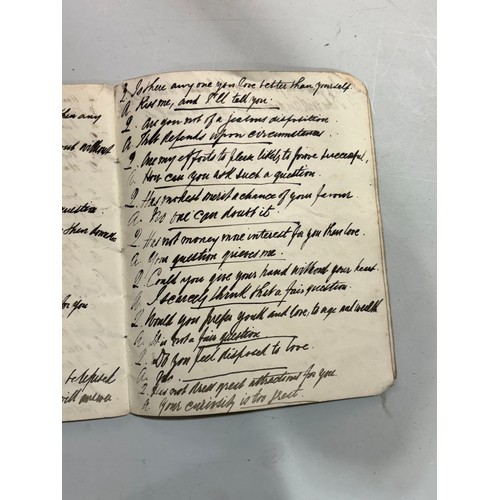 hen any
out without
question.
then some
for you
be refused
will
Q. Is there any one you love better than yourself.
A. Kiss me, and I'll tell you.
Q. Are you not of a jealous disposition.
A. That depends upon circumstances.
Q. Are my efforts to please likely to prove successful,
A. How can you ask such a question.
Q. Has modest merit a chance of your favour
A. No one can doubt it.
Q. Has not money more interest for you than love.
A. Your question grieves me.
Q. Could you give your hand without your heart.
A. I scarcely think that a fair question.
Q. Would you prefer youth and love, to age and wealth
A. It is not a fair question
Q. Do you feel disposed to love.
A. Yes.
Q. Has not dress great attractions for you
A. Your curiosity is too great.